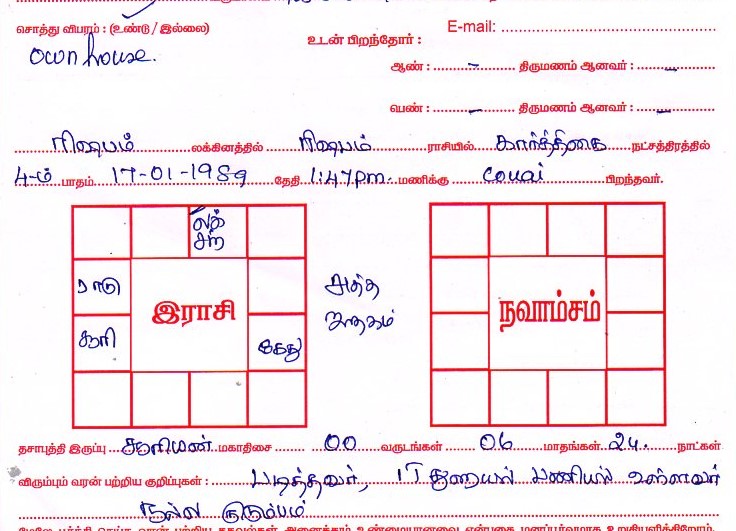 சொத்து விபரம் : (உண்டு / இல்லை)
E-mail:
own house.
உடன் பிறந்தோர் :
ஆண் : – திருமணம் ஆனவர் : –
பெண் : – திருமணம் ஆனவர் : –
ரிஷபம் லக்கினத்தில் ரிஷபம் ராசியில் கார்த்திகை நட்சத்திரத்தில்
4-ம் பாதம் 17-01-1989 தேதி 1:47pm. மணிக்கு covai பிறந்தவர்.
லக்
சந்
ராகு
சூரி
கேது
இராசி
சுத்த
ஜாதகம்
நவாம்சம்
தசாபுத்தி இருப்பு சூரியன் மகாதிசை 00 வருடங்கள் 06 மாதங்கள் 24. நாட்கள்
விரும்பும் வரன் பற்றிய குறிப்புகள் : படித்தவர், IT துறையில் பணியில் உள்ளவர்
நல்ல குடும்பம்